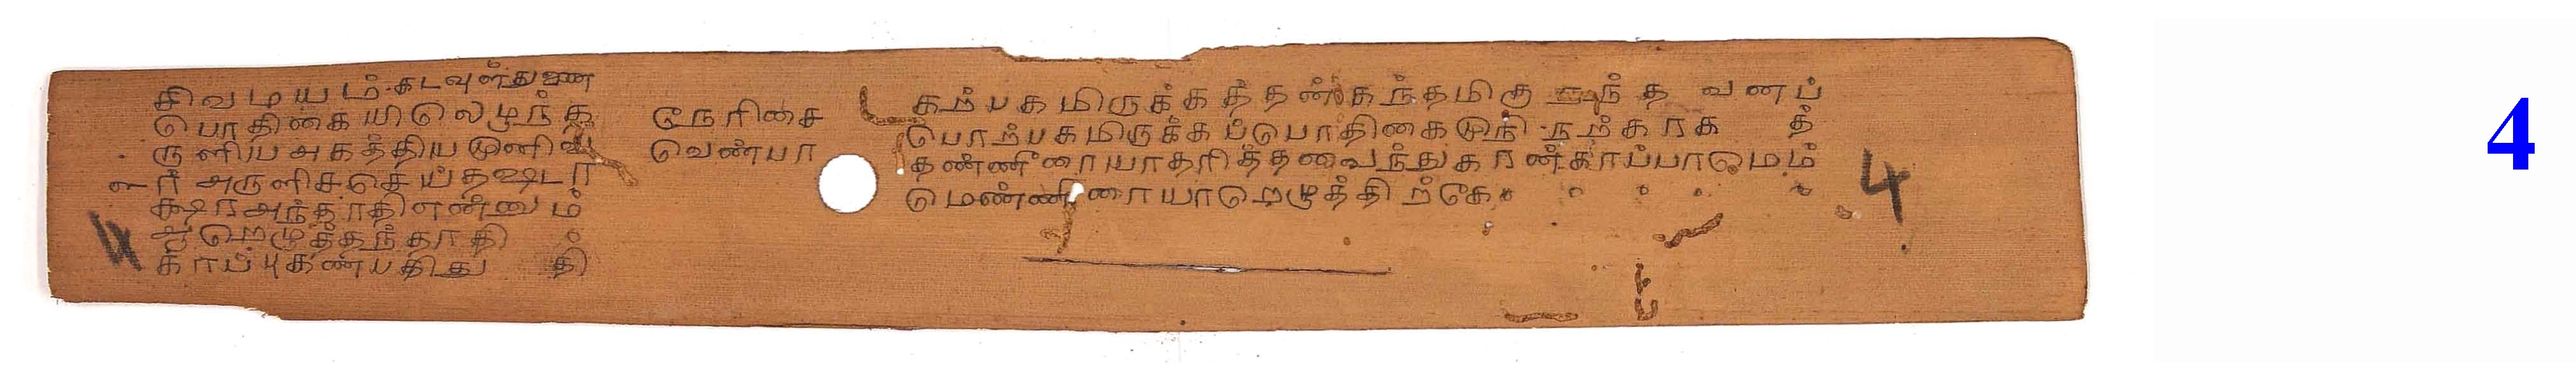 சிவமயம் கடவுள்துணை
பொதிகையிலெழுந்த
ருளிய அகத்திய முனிவ
ர் அருளிச்செய்த ஷடா
க்ஷர அந்தாதி என்னும்
ஆறெழுத்தந்தாதி
காப்பு கணபதிது தி
நேரிசை
வெண்பா
கற்பகமிருக்கத்தண்கந்தமிகு நந்த வனப்
பொற்பகமிருக்கப்பொதிகைமுநி நற்கரக த்
தண்ணீரையாதரித்தவைந்துகரன்காப்பாமெம்
மெண்ணிரையாறெழுத்திற்கே
4
4
4